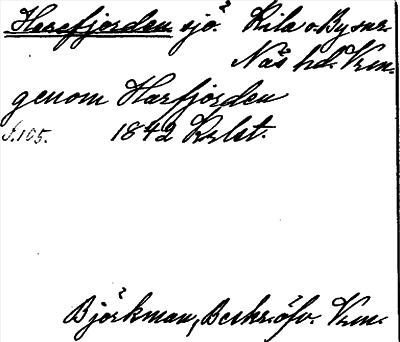 Harefjorden sjö. Kila o. By snr.
Näs hd. Vrm.
genom Harfjorden
S. 105. 1842 Krlst.
Björkman, Beskr. öfv. Vrm.